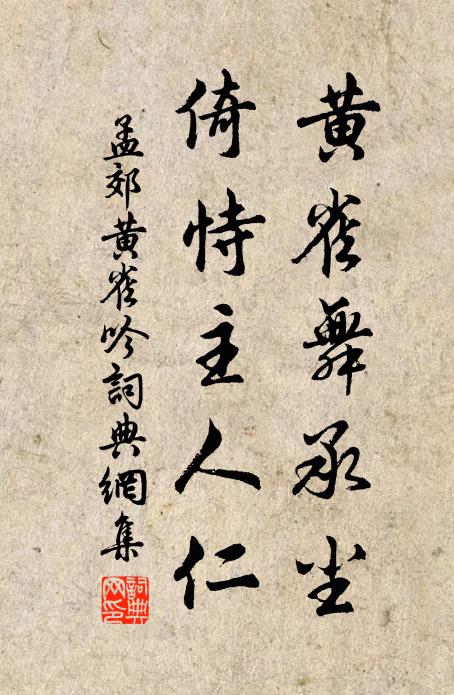 黄雀舞承尘
倚恃主人仁
孟郊黄雀吟詞典網集
詞典網印